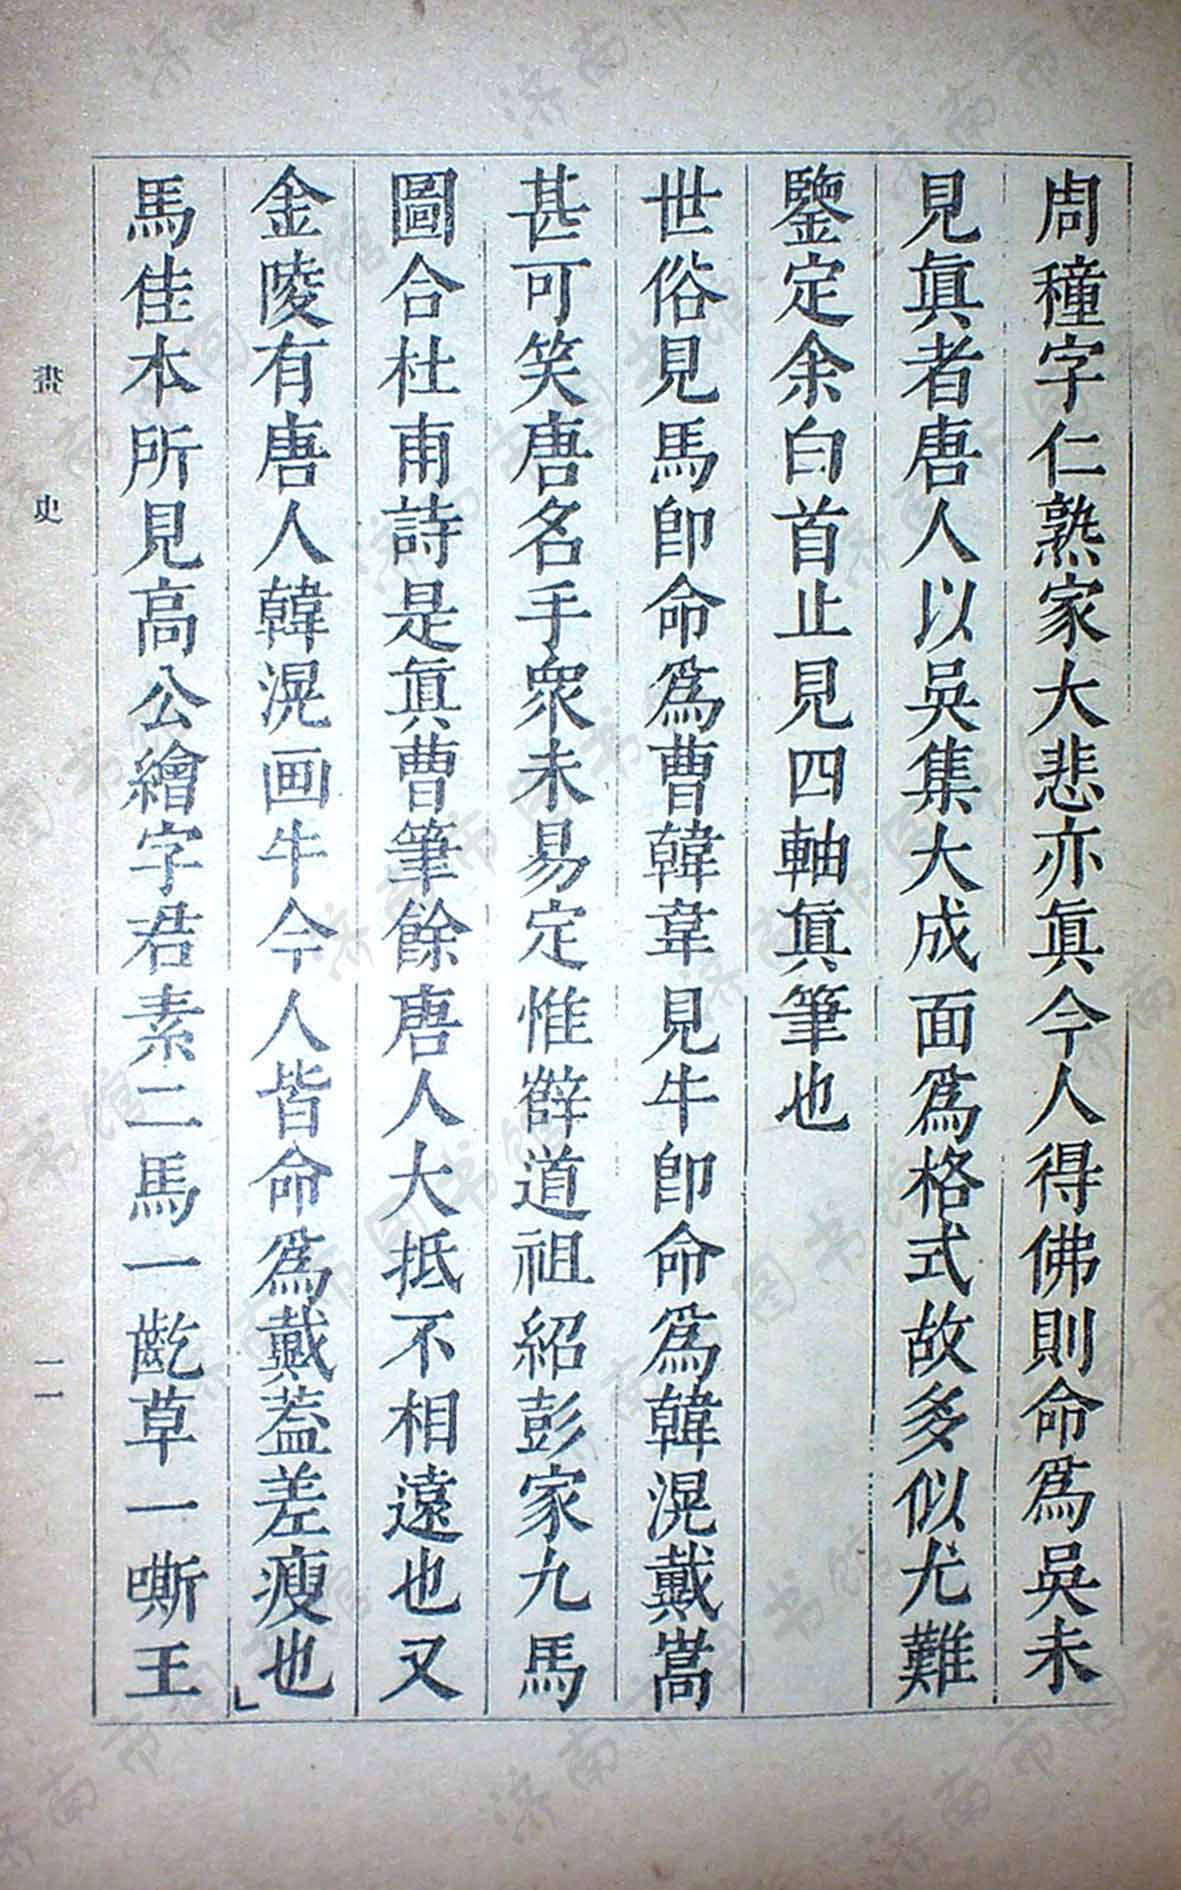 周穜字仁熟家大悲亦眞今人得佛則命爲吳未
見眞者唐人以吳集大成面爲格式故多似尤難
鑒定余白首止見四軸眞筆也
世俗見馬卽命爲曹韓韋見牛卽命爲韓滉戴嵩
甚可笑唐名手衆未易定惟薛道祖紹彭家九馬
圖合杜甫詩是眞曹筆餘唐人大抵不相遠也又
金陵有唐人韓滉画牛今人皆命爲戴蓋差瘦也」
馬佳本所見高公繪字君素二馬一齕草一嘶王
畫史
一一
济南市图书馆